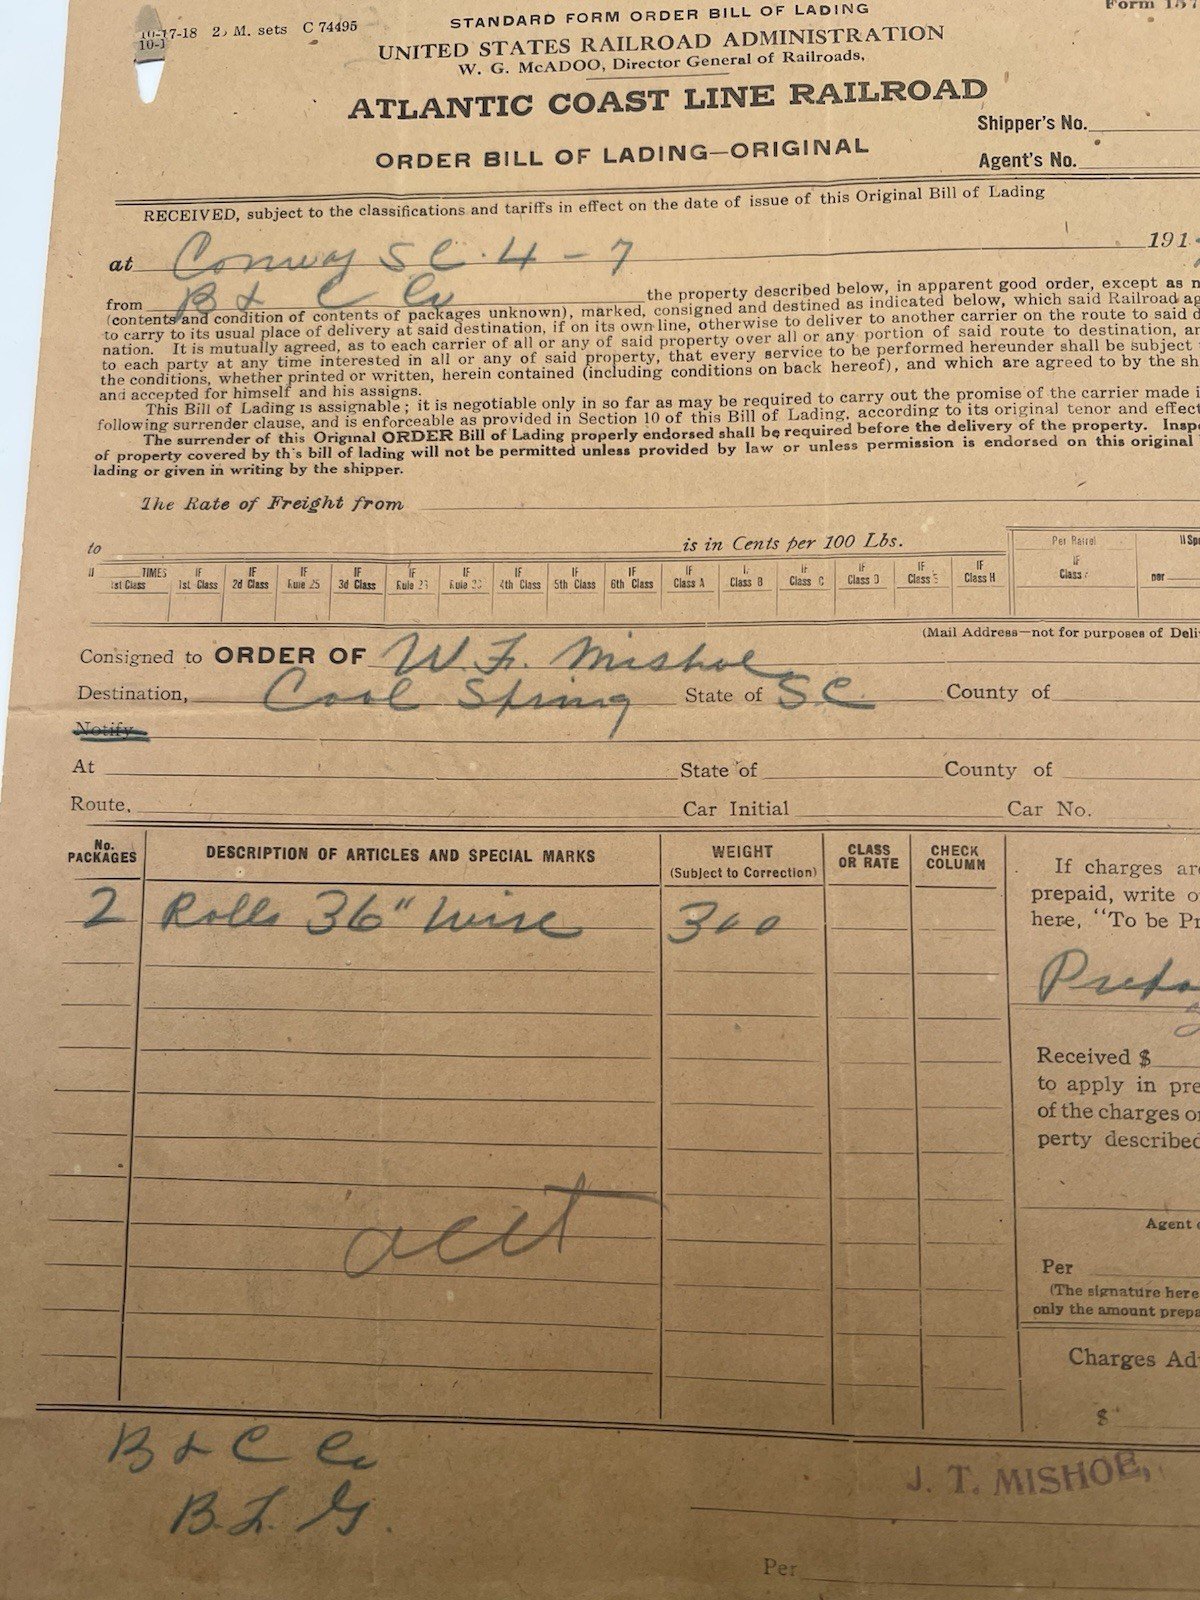 Form 157
10-17-18 2 M. sets C 74495
10-1
STANDARD FORM ORDER BILL OF LADING
UNITED STATES RAILROAD ADMINISTRATION
W. G. McADOO, Director General of Railroads,
ATLANTIC COAST LINE RAILROAD
Shipper's No.
ORDER BILL OF LADING—ORIGINAL
Agent's No.
RECEIVED, subject to the classifications and tariffs in effect on the date of issue of this Original Bill of Lading
at Conway S C. 4 - 7 191
from B & C Co the property described below, in apparent good order, except as n
(contents and condition of contents of packages unknown), marked, consigned and destined as indicated below, which said Railroad ag
to carry to its usual place of delivery at said destination, if on its own line, otherwise to deliver to another carrier on the route to said d
nation. It is mutually agreed, as to each carrier of all or any of said property over all or any portion of said route to destination, an
to each party at any time interested in all or any of said property, that every service to be performed hereunder shall be subject
the conditions, whether printed or written, herein contained (including conditions on back hereof), and which are agreed to by the sh
and accepted for himself and his assigns.
This Bill of Lading is assignable; it is negotiable only in so far as may be required to carry out the promise of the carrier made i
following surrender clause, and is enforceable as provided in Section 10 of this Bill of Lading, according to its original tenor and effec
The surrender of this Original ORDER Bill of Lading properly endorsed shall be required before the delivery of the property. Insp
of property covered by th's bill of lading will not be permitted unless provided by law or unless permission is endorsed on this original
lading or given in writing by the shipper.
The Rate of Freight from
to is in Cents per 100 Lbs.
TIMES 1st Class IF 1st Class IF 2d Class IF Rule 25 IF 3d Class IF Rule IF Rule IF 4th Class IF 5th Class IF 6th Class IF Class A IF Class B IF Class C IF Class D IF Class E IF Class H Per Barrel IF Class If Spe per
(Mail Address—not for purposes of Deli
Consigned to ORDER OF W. F. Mishoe
Destination, Cool Spring State of S.C. County of
Notify
At State of County of
Route, Car Initial Car No.
No. PACKAGES DESCRIPTION OF ARTICLES AND SPECIAL MARKS WEIGHT (Subject to Correction) CLASS OR RATE CHECK COLUMN
2 Rolls 36" Wire 300
If charges are
prepaid, write o
here, "To be Pr
Received $
to apply in pre
of the charges o
perty described
Agent o
Per
(The signature here
only the amount prepa
Charges Ad
$
B & C Co
B. L. G.
J. T. MISHOE,
Per